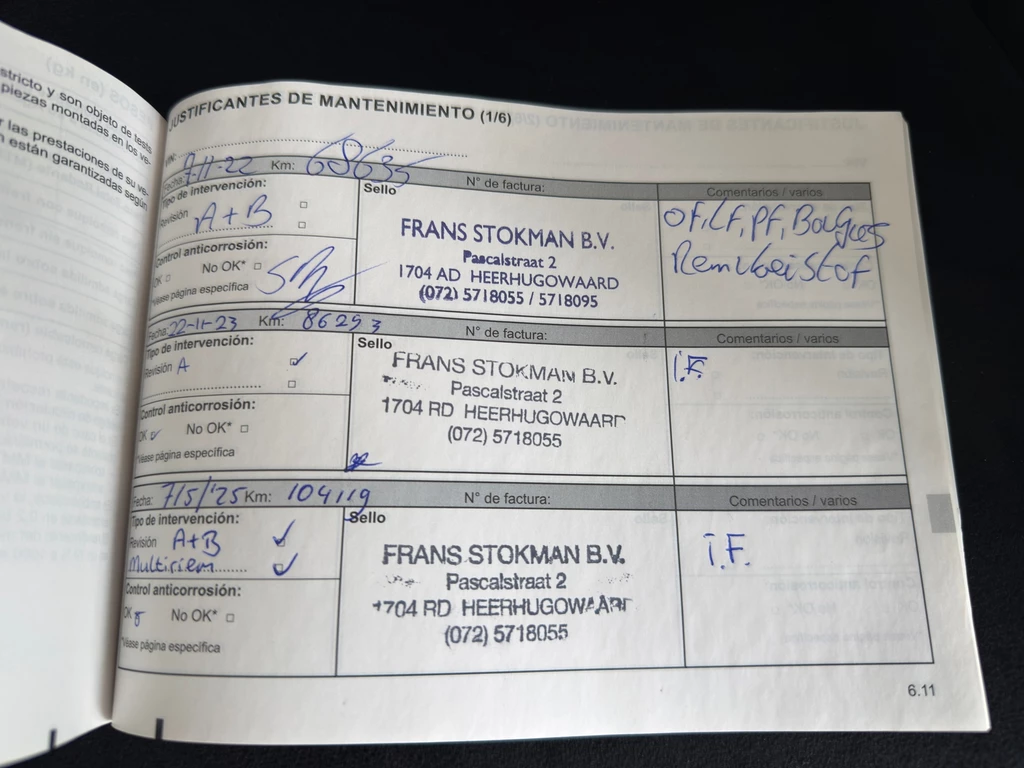 stricto y son objeto de tests
piezas montadas en los ve-
r las prestaciones de su ve-
n están garantizadas según
JUSTIFICANTES DE MANTENIMIENTO (1/6)
VIN:
Fecha: 9-11-22 Km: 68635 N° de factura: Comentarios / varios
Tipo de intervención:
Revisión A+B
Control anticorrosión:
OK No OK*
*Véase página específica
Sello
FRANS STOKMAN B.V.
Pascalstraat 2
1704 AD HEERHUGOWAARD
(072) 5718055 / 5718095
OF, LF, PF, Bougies
Remvloeistof
Fecha: 22-11-23 Km: 86293 N° de factura: Comentarios / varios
Tipo de intervención:
Revisión A
Control anticorrosión:
OK No OK*
*Véase página específica
Sello
FRANS STOKMAN B.V.
Pascalstraat 2
1704 RD HEERHUGOWAARD
(072) 5718055
I.F.
Fecha: 7/5/'25 Km: 104119 N° de factura: Comentarios / varios
Tipo de intervención:
Revisión A+B
Multiriem
Control anticorrosión:
OK No OK*
*Véase página específica
Sello
FRANS STOKMAN B.V.
Pascalstraat 2
1704 RD HEERHUGOWAARD
(072) 5718055
I.F.
6.11